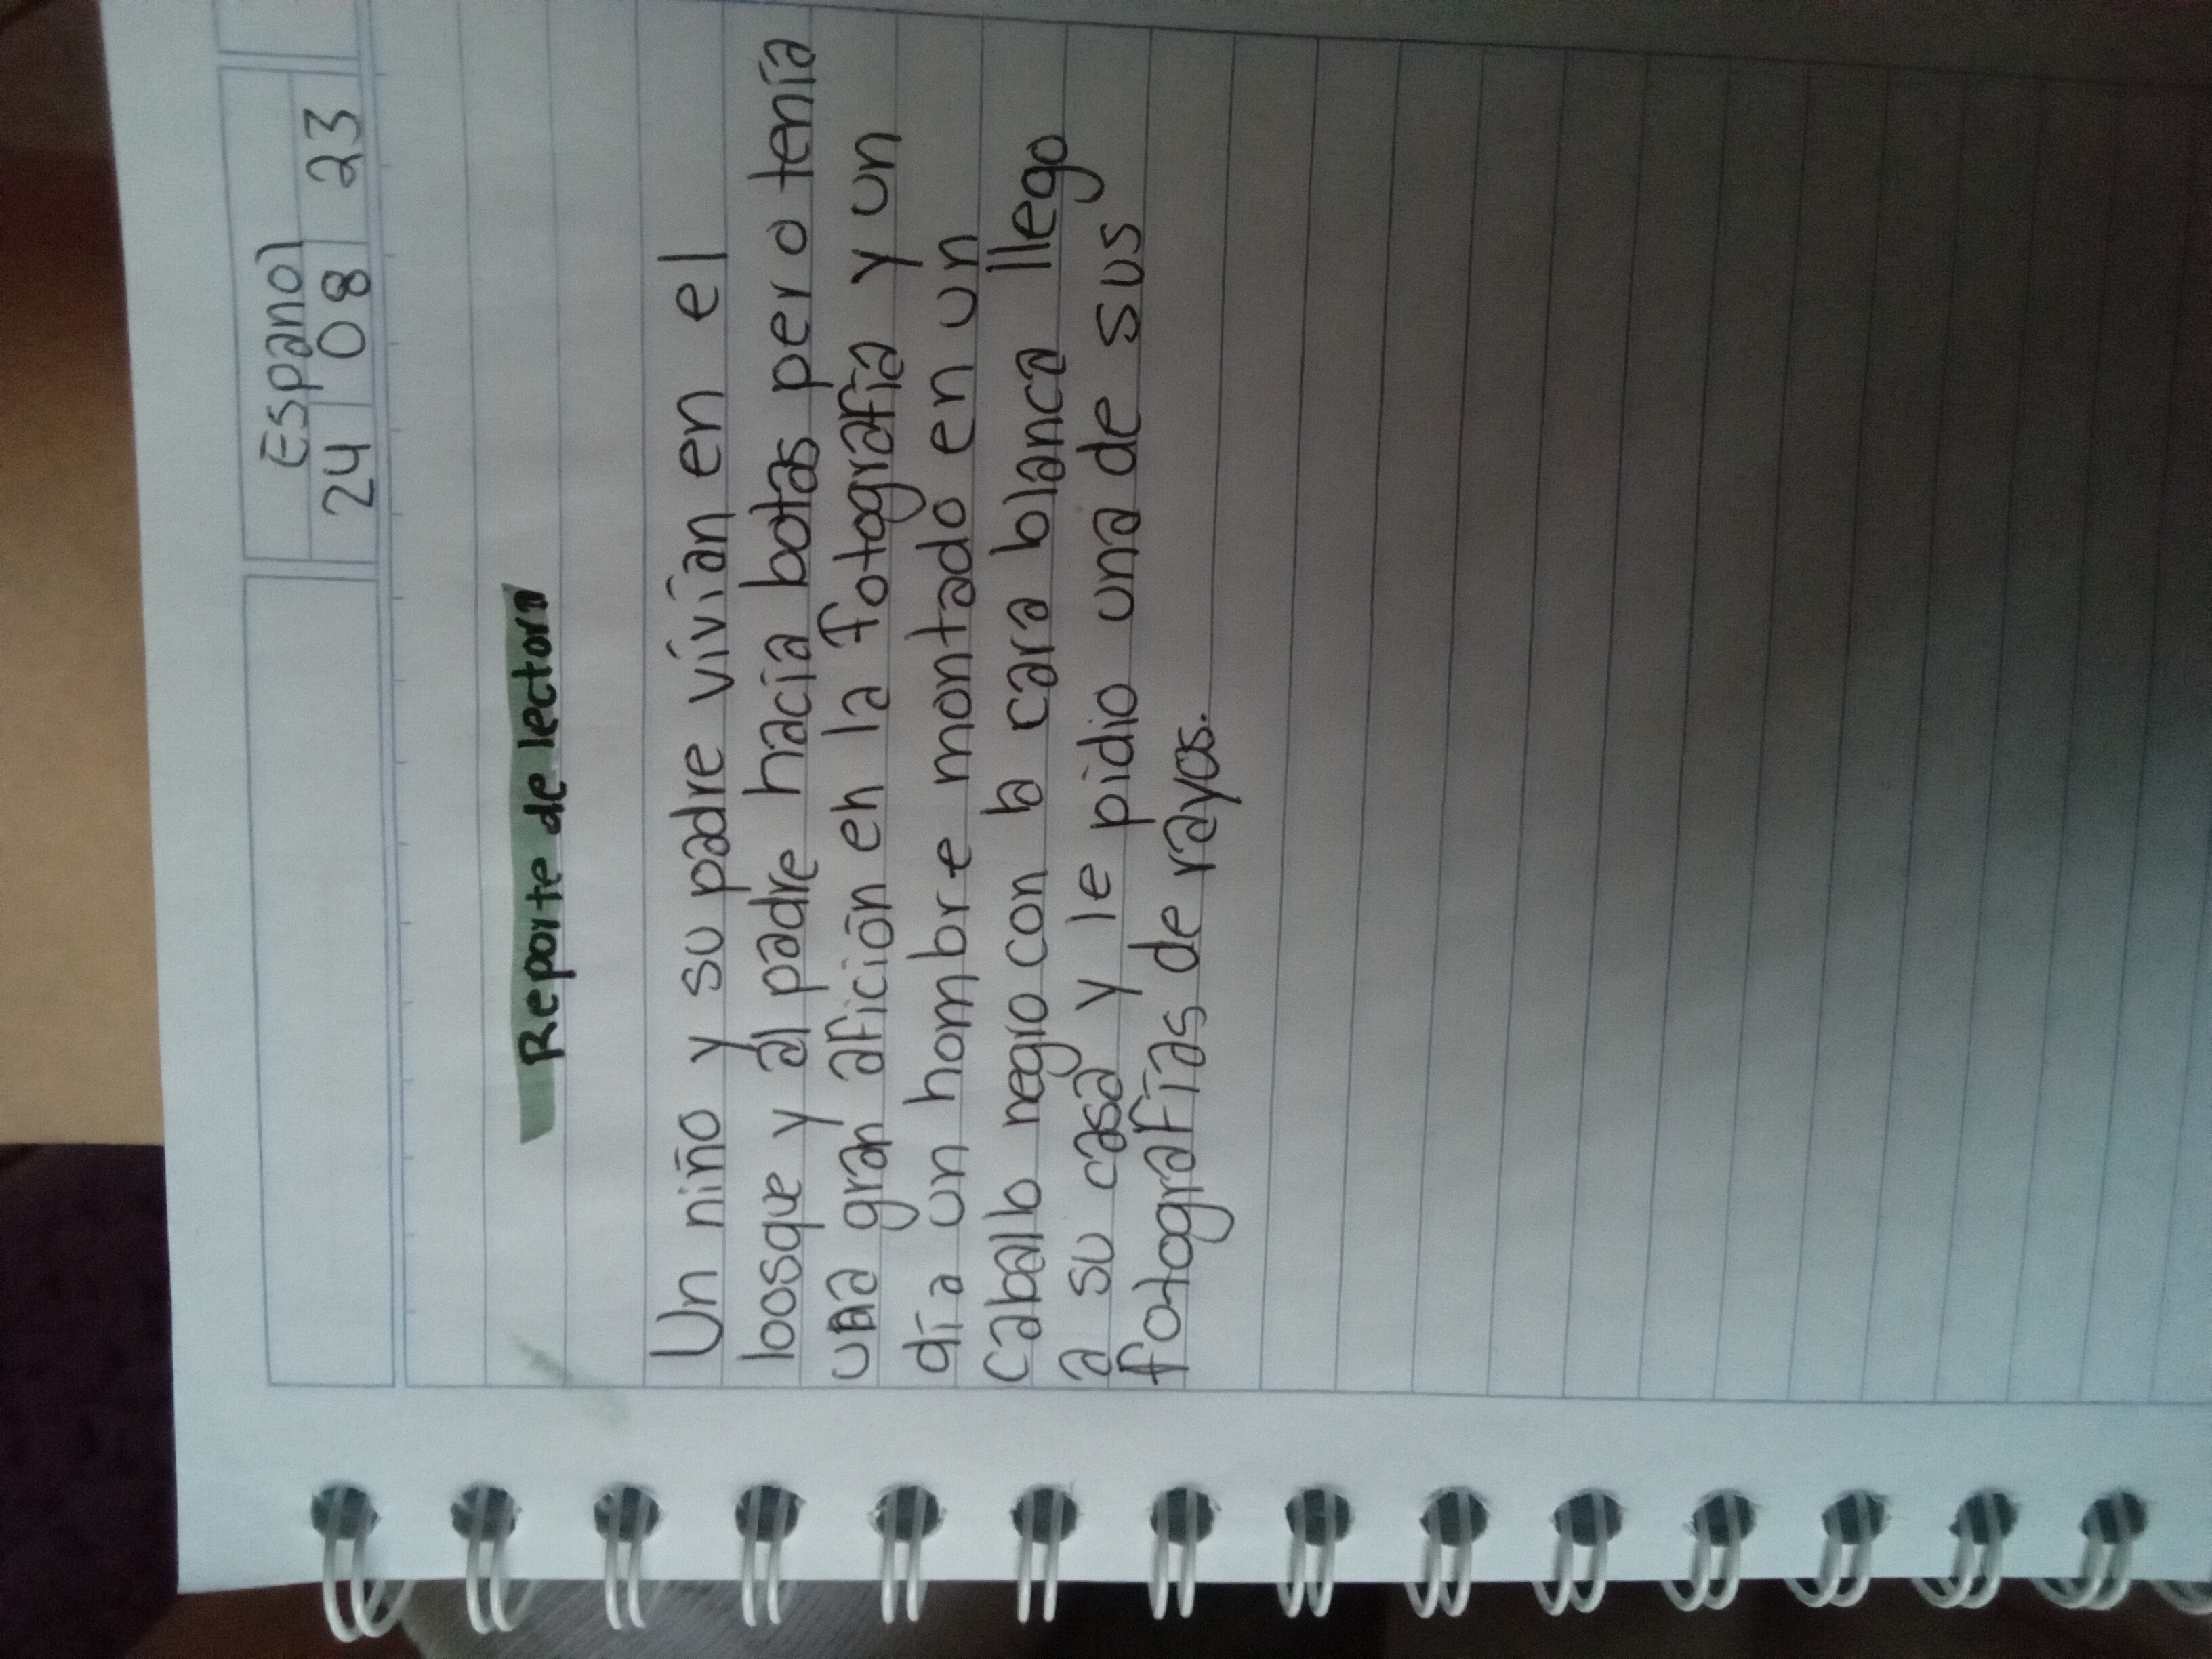 Español
24 08 23
Reporte de lectora
Un niño y su padre vivían en el
bosque y al padre hacía botas pero tenía
una gran afición en la fotografía y un
día un hombre montado en un
caballo negro con la cara blanca llego
a su casa y le pidio una de sus
fotografías de rayos.